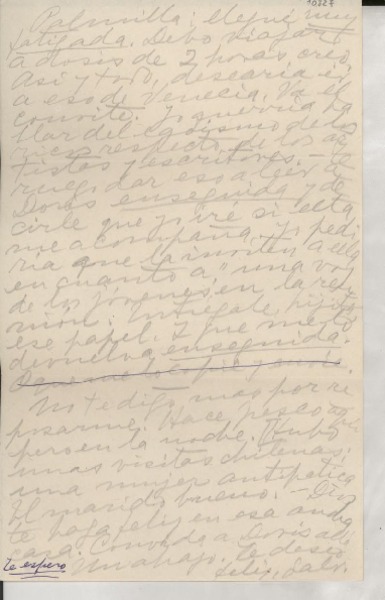 10227
Palmilla: llegué muy
fatigada. Debo viajar
a dosis de 2 horas, creo.
Así y todo, desearía ir
a eso de Venecia. Va el
convite. Yo querría ha
blar del egoísmo de los
ricos respecto de los ar
tistas y escritores. — Te
ruego dar eso a leer a
Doris enseguida y de
cirle que yo iré si ella
me acompaña. Yo pedi
ría que la inviten a ella
en cuanto a "una voz
de los jóvenes" en la reu
nión. Entrégale, hijito,
ese papel. Y que me lo
devuelva enseguida.
No te digo más por re
posarme. Hace fresco
pero en la noche. Hubo
unas visitas chilenas:
una mujer antipática
El marido bueno. — Dios
te haga feliz en esa
casa. Convida a Doris allá.
Un abrazo. Te deseo
feliz, Gabr.
Te espero